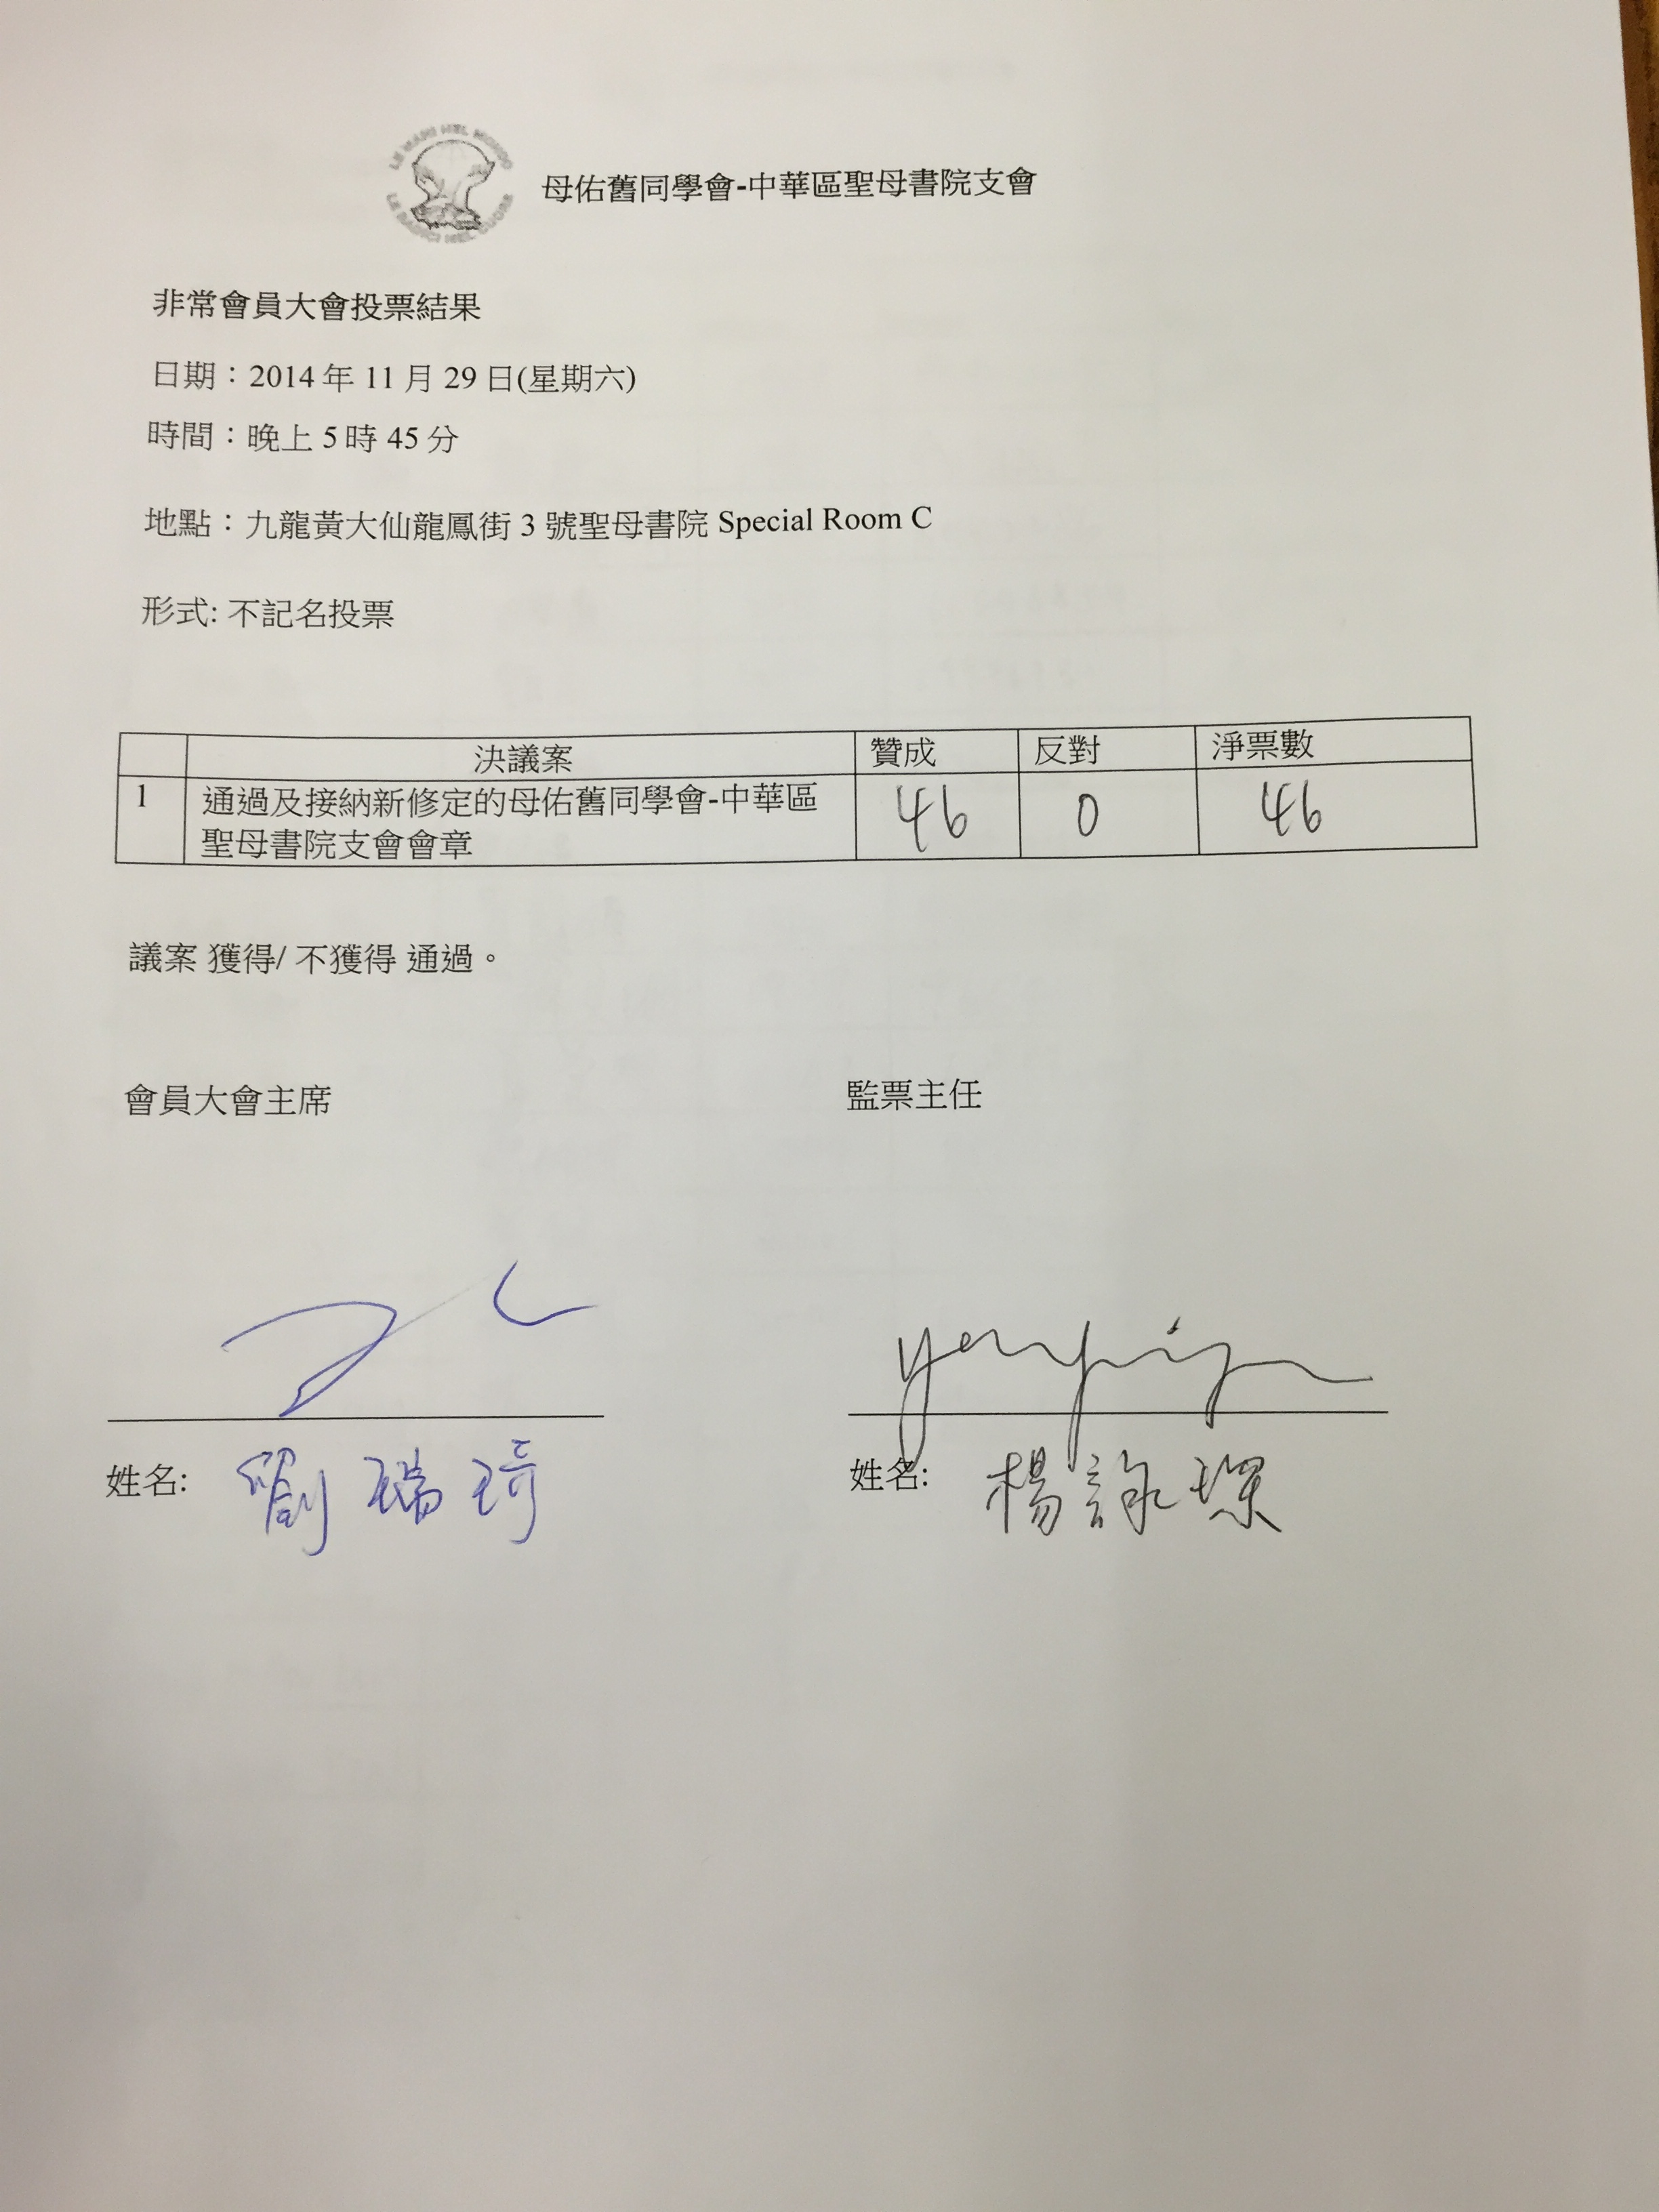 母佑舊同學會-中華區聖母書院支會
非常會員大會投票結果
日期：2014 年 11 月 29 日(星期六)
時間：晚上 5 時 45 分
地點：九龍黃大仙龍鳳街 3 號聖母書院 Special Room C
形式: 不記名投票
決議案 贊成 反對 淨票數
1 通過及接納新修定的母佑舊同學會-中華區 46 0 46
聖母書院支會會章
議案 獲得/ 不獲得 通過。
會員大會主席 監票主任
姓名: 劉瑞琦 姓名: 楊詠瓊